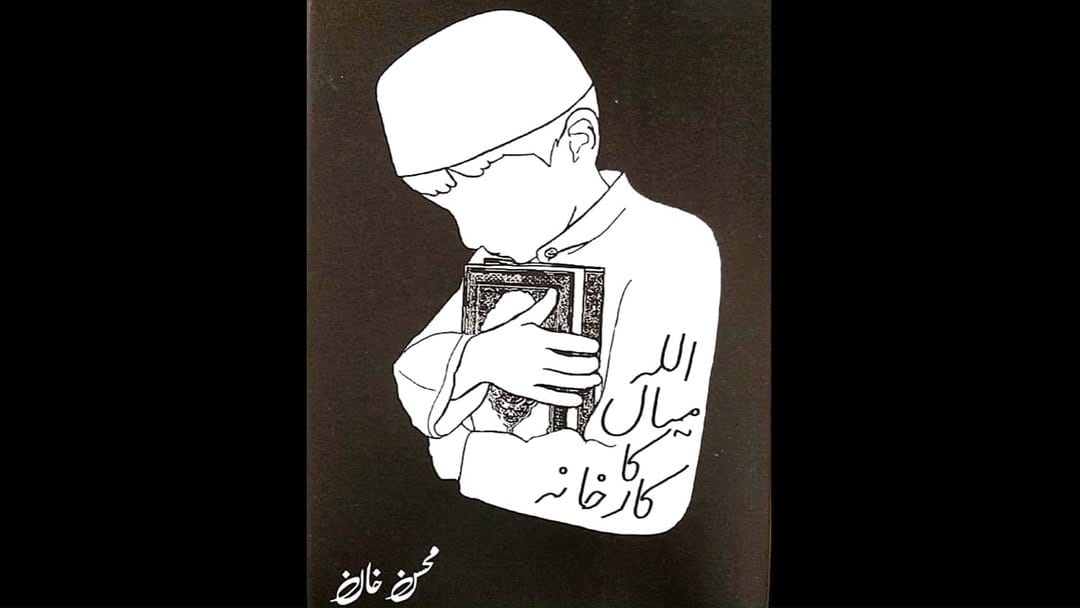 اللہ
میاں
کا
کارخانہ
محسن خان